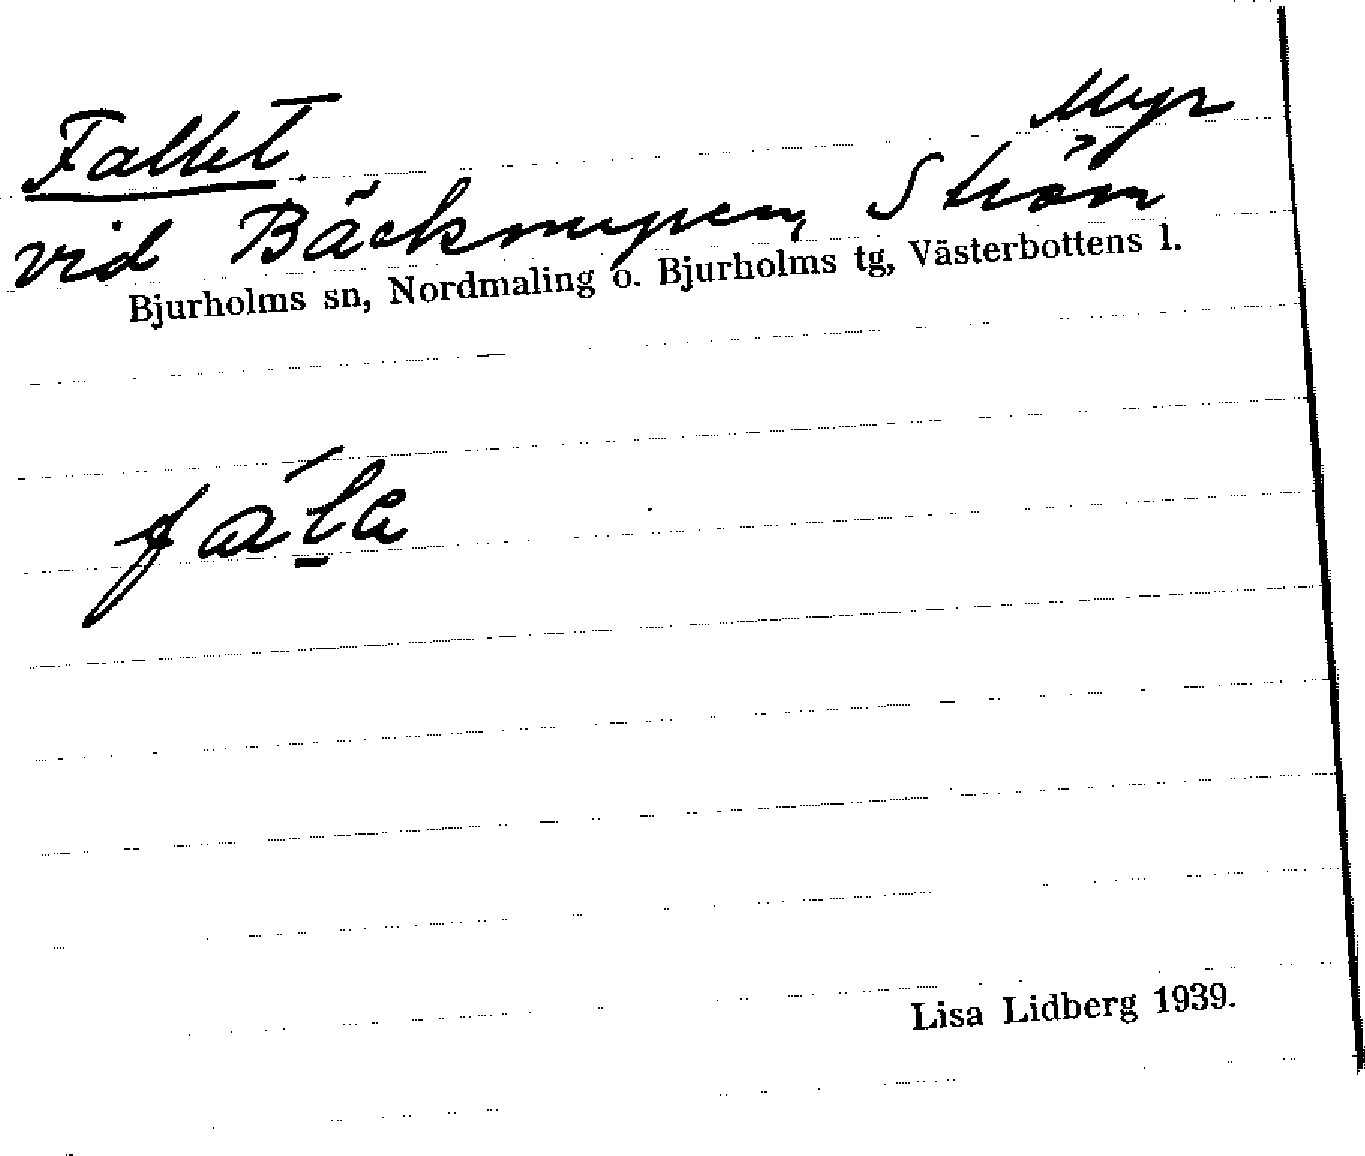 Fallet. Myr
vid Bäckmyren, Ström
Bjurholms sn, Nordmaling o. Bjurholms tg, Västerbottens l.
Lisa Lidberg 1939.